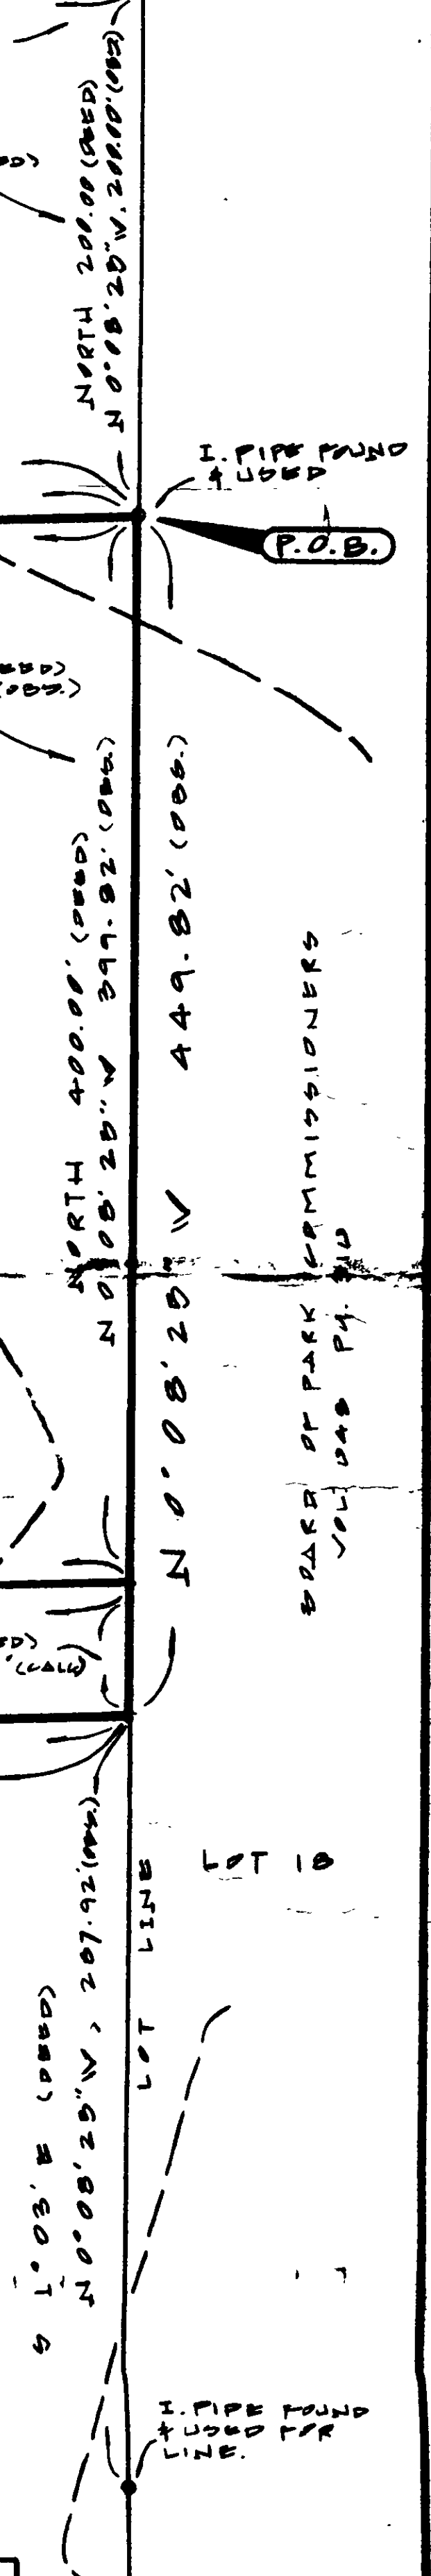 NORTH 200.00 (DEED)
N 0°08'25"W, 200.00' (OBS)
I. PIPE FOUND
& USED
P.O.B.
(DEED)
(OBS.)
NORTH 400.00' (DEED)
N 0°08'25" W 399.82' (OBS.)
N 0°08'25" W 449.82' (OBS.)
BOARD OF PARK COMMISSIONERS
VOL. Pg.
(CALC)
LOT 18
LOT LINE
S 1°03' E (DEED)
N 0°08'25"W, 267.92' (OBS.)
I. PIPE FOUND
& USED FOR
LINE.